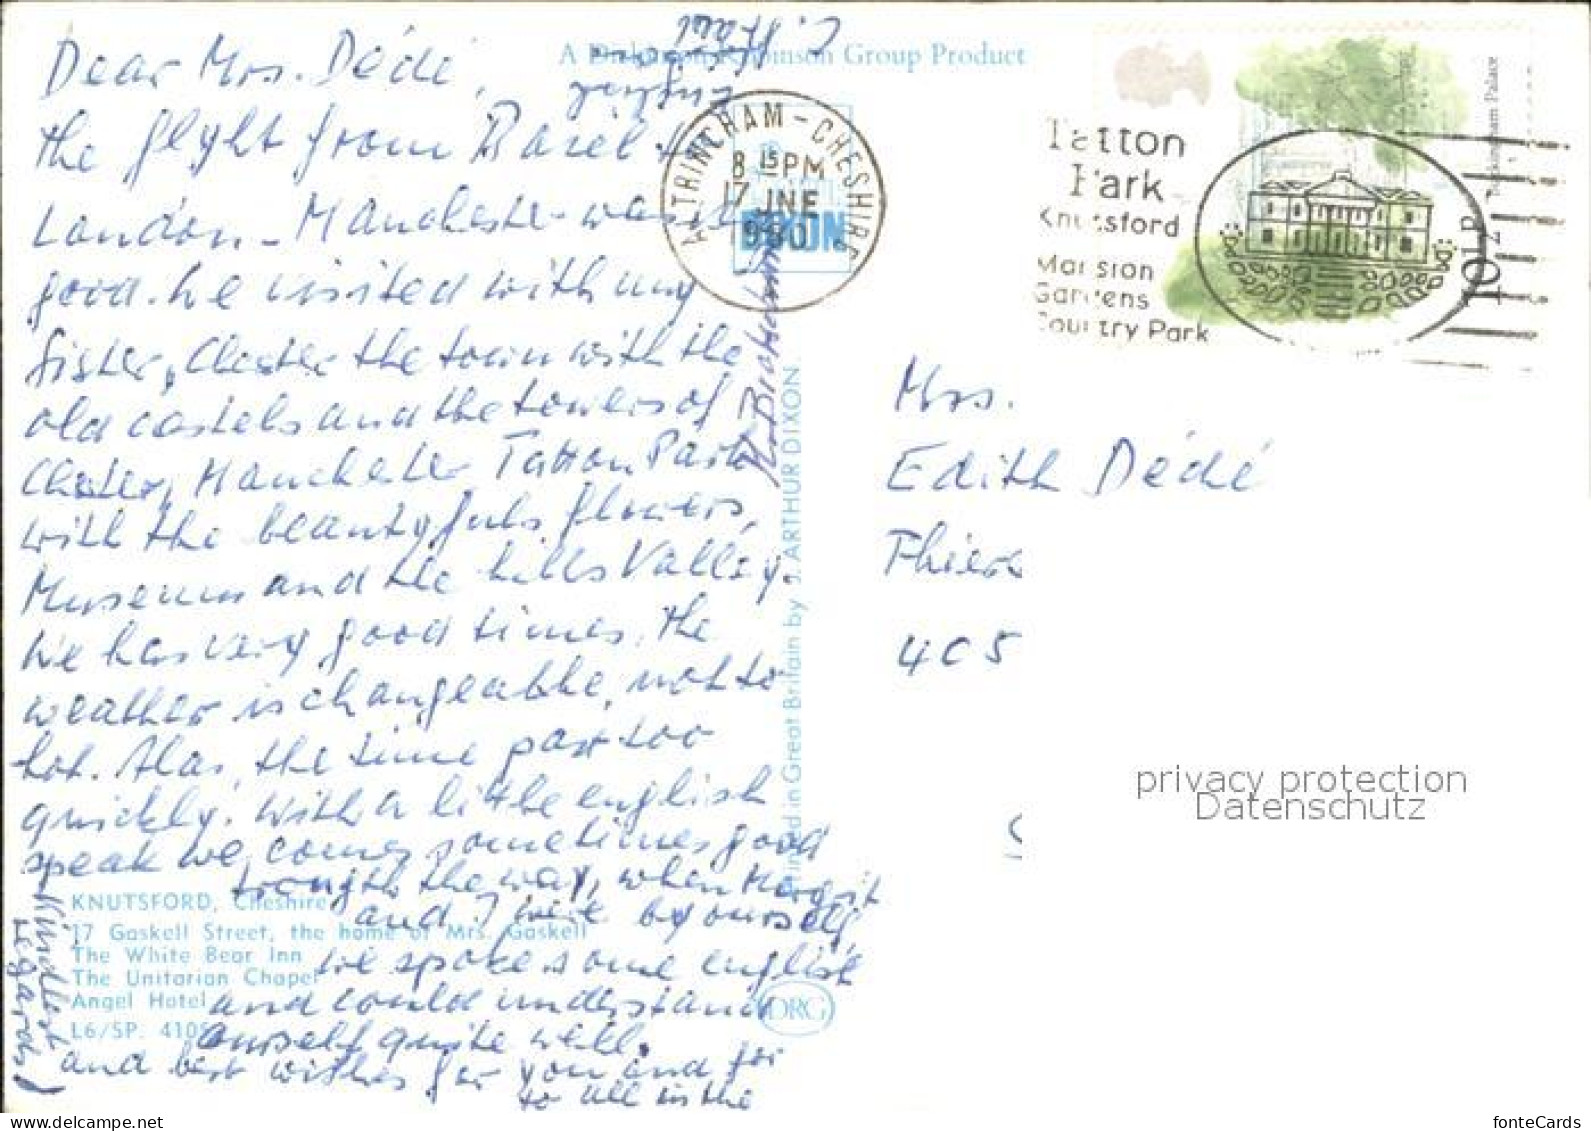 Dear Mrs. Dédé,
the flyght from Basel
London - Manchester was
good. We visited with my
sister, Chester the town with the
old castels and the towers of
Chester, Manchester Tatton Park
with the beautyfuls flowers,
Museum and the hills Valley.
We has very good times. the
weather is changeable, not to
hot. Alas, the time pass too
quickly. With a little english
speak we comes sometimes good
trougth the way, when Margrit
and I were by ourself,
we spoke some english
and could understand
ourself quite well.
and best wishes for you and for
to all in the
Kindlest
regards
english
A Dickinson Robinson Group Product
ALTRINCHAM - CHESHIRE
8 15 PM
17 JNE
1980
DIXON
Printed in Great Britain by J. ARTHUR DIXON
KNUTSFORD, Cheshire
17 Gaskell Street, the home of Mrs. Gaskell
The White Bear Inn
The Unitarian Chapel
Angel Hotel
L6/SP. 4105
DRG
Tatton
Park
Knutsford
Mansion
Gardens
Country Park
Buckingham Palace
10½P
Mrs.
Edith Dédé
405
privacy protection
Datenschutz
delcampe.net
fonteCards